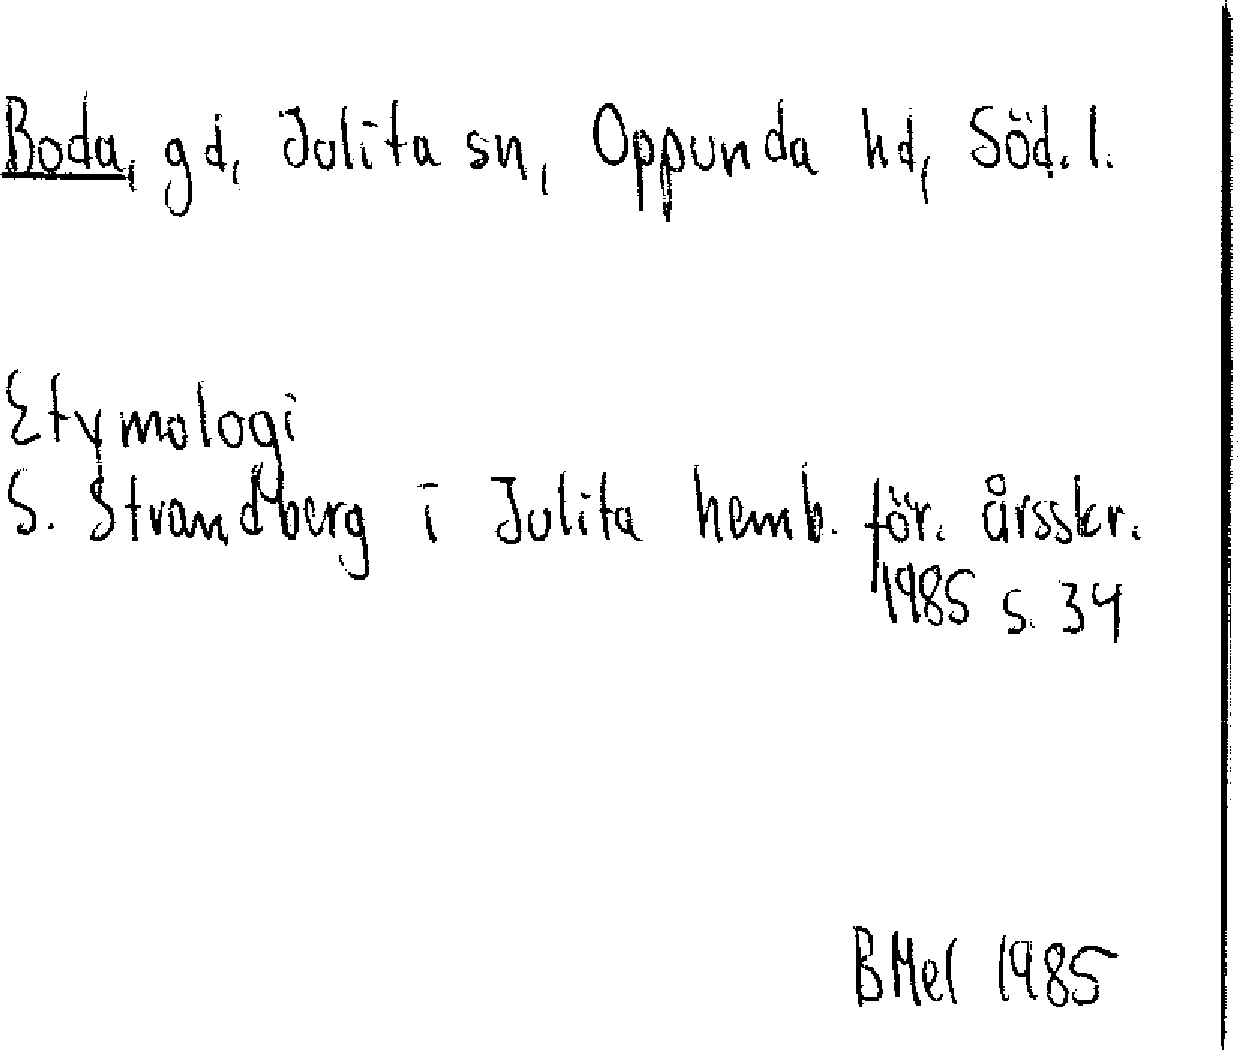 Boda, gd, Julita sn, Oppunda hd, Söd. l.
Etymologi
S. Strandberg i Julita hemb. för. årsskr.
1985 s. 34
BMel 1985